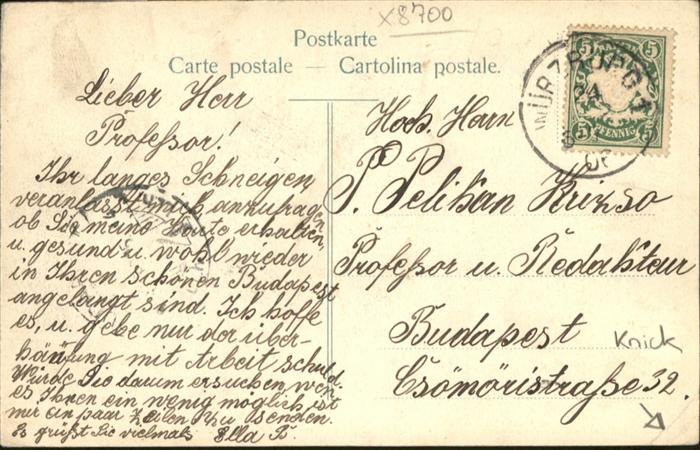 x8700
Postkarte
Carte postale — Cartolina postale.
5 5
5 PFENNIG 5
WÜRZBURG 1
Lieber Herr
Professor!
Ihr langes Schweigen
veranlasst mich, anzufragen,
ob Sie meine Karte erhalten,
u. gesund u. wohl wieder
in Ihren schönen Budapest
angelangt sind. Ich hoffe
es, u. gebe nur der über-
häufung mit Arbeit schuld.
Würde Sie darum ersuchen, wenn
es Ihnen ein wenig möglich ist
mir ein paar Zeilen zu senden.
Es grüßt Sie vielmals Ella B.
Hoch. Herrn
P. Pelikan Krizso
Professor u. Redakteur
Budapest
Csömöristraße 32.
Knick